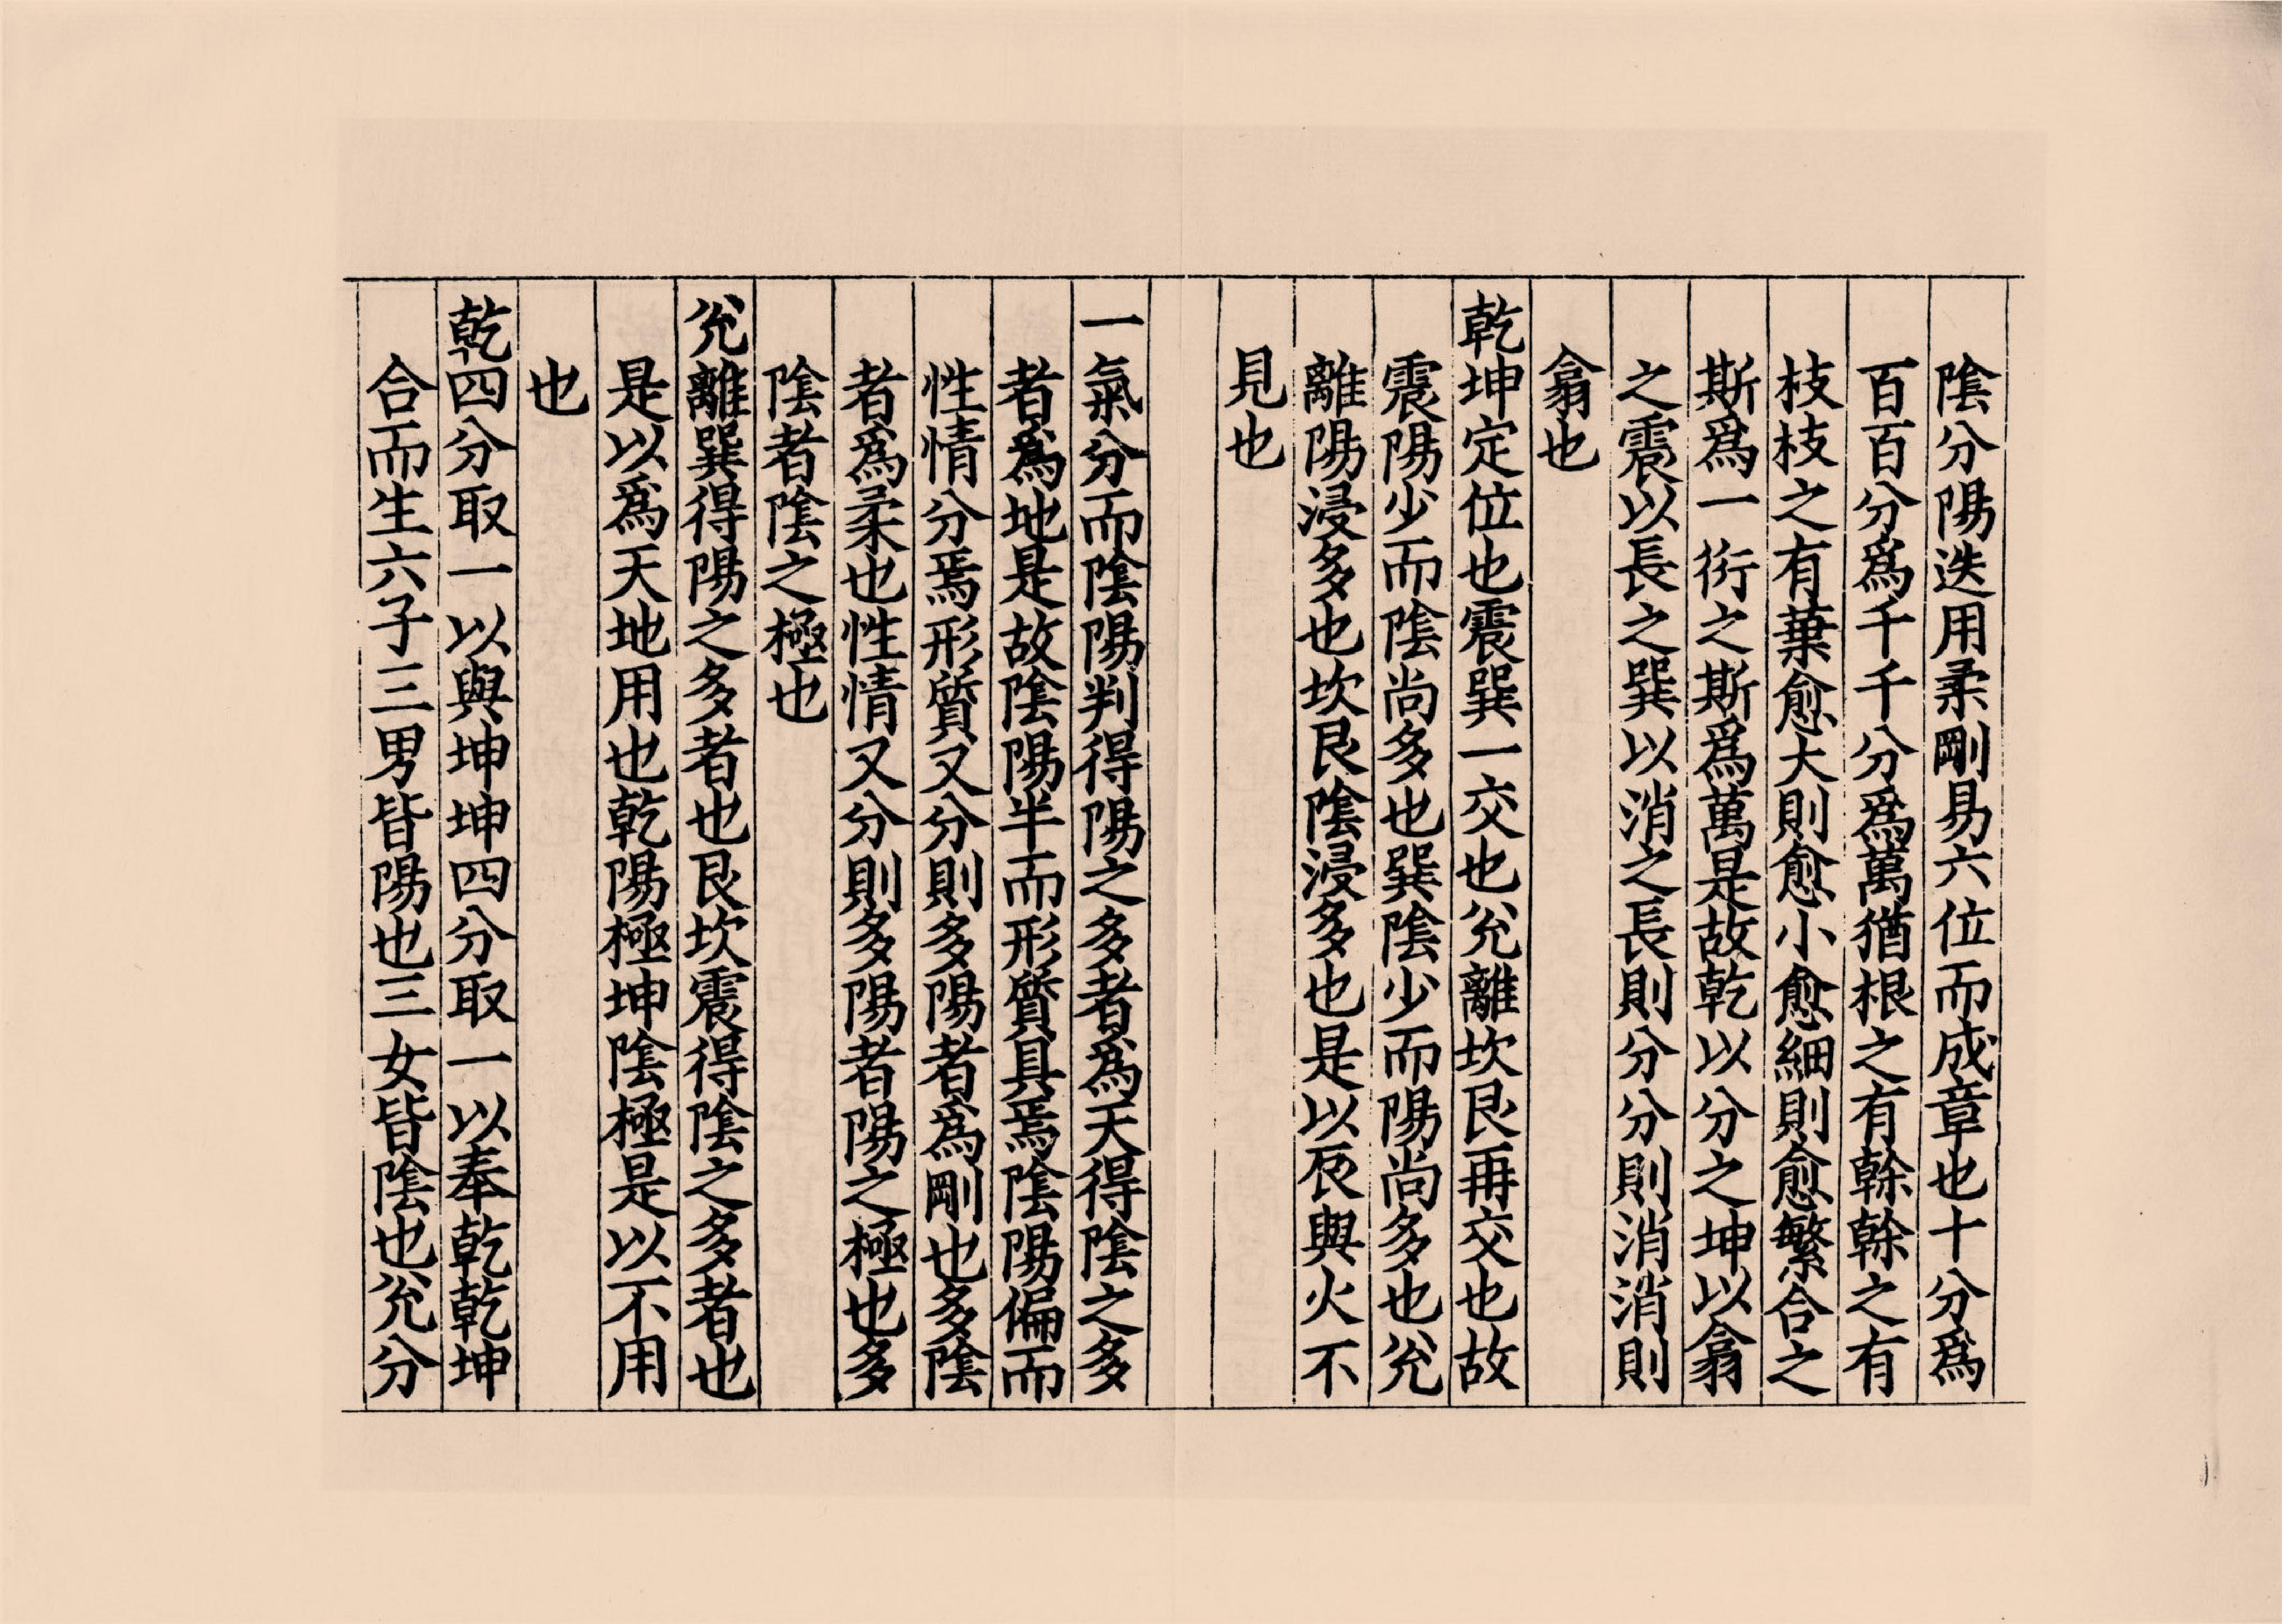 陰分陽迭用柔剛易六位而成章也十分爲
百百分爲千千分爲萬猶根之有榦榦之有
枝枝之有葉愈大則愈小愈細則愈繁合之
斯爲一衍之斯爲萬是故乾以分之坤以翕
之震以長之巽以消之長則分分則消消則
翕也
乾坤定位也震巽一交也兊離坎艮再交也故
震陽少而陰尚多也巽陰少而陽尚多也兊
離陽浸多也坎艮陰浸多也是以辰與火不
見也
一氣分而陰陽判得陽之多者爲天得陰之多
者爲地是故陰陽半而形質具焉陰陽偏而
性情分焉形質又分則多陽者爲剛也多陰
者爲柔也性情又分則多陽者陽之極也多
陰者陰之極也
兊離巽得陽之多者也艮坎震得陰之多者也
是以爲天地用也乾陽極坤陰極是以不用
也
乾四分取一以與坤坤四分取一以奉乾乾坤
合而生六子三男皆陽也三女皆陰也兊分